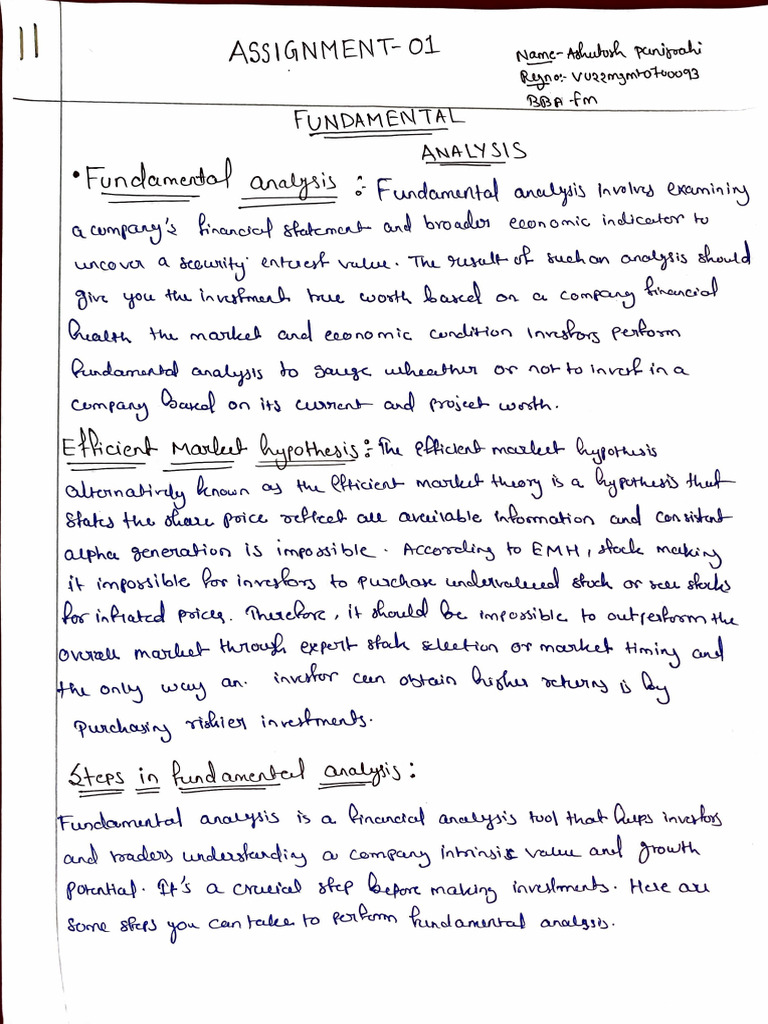 11
ASSIGNMENT-01
Name- Ashutosh Panigrahi
Regno:- VU22mgmt0700093
BBA-fm
FUNDAMENTAL
ANALYSIS
• Fundamental analysis : Fundamental analysis involves examining
a company's financial statement and broader economic indicator to
uncover a security enterest value. The result of such an analysis should
give you the investments true worth based on a company financial
health the market and economic condition Investors perform
fundamental analysis to gauge wheather or not to invest in a
company based on its current and project worth.
Efficient Market hypothesis : The efficient market hypothesis
alternatively known as the efficient market theory is a hypothesis that
states the share price reflect all available information and consistent
alpha generation is impossible. According to EMH, stock making
it impossible for investors to purchase undervalued stock or sell stocks
for inflated prices. Therefore, it should be impossible to outperform the
overall market through expert stock selection or market timing and
the only way an. investor can obtain higher returns is by
purchasing riskier investments.
Steps in fundamental analysis :
Fundamental analysis is a financial analysis tool that helps investors
and traders understanding a company intrinsic value and growth
potential. It's a crucial step before making investments. Here are
some steps you can take to perform fundamental analysis.